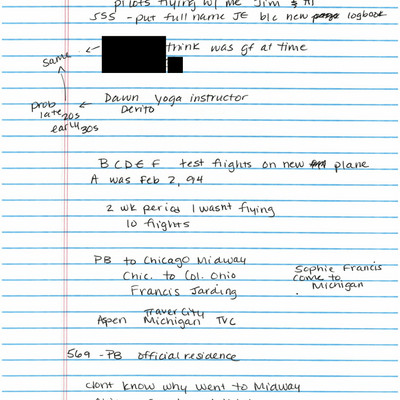 pilots flying w/ me Jim
JSS - put full name JE b/c new logbook
same
think was gf at time
prob late 20s early 30s
Dawn yoga instructor
Devito
B C D E F test flights on new plane
A was Feb 2, 94
2 wk period I wasnt flying
10 flights
PB to Chicago Midway
Chic. to Col. Ohio
Francis Jarding
Sophie Francis
come to
Michigan
Traver City
Aspen Michigan TVC
569 - PB official residence
dont know why went to Midway